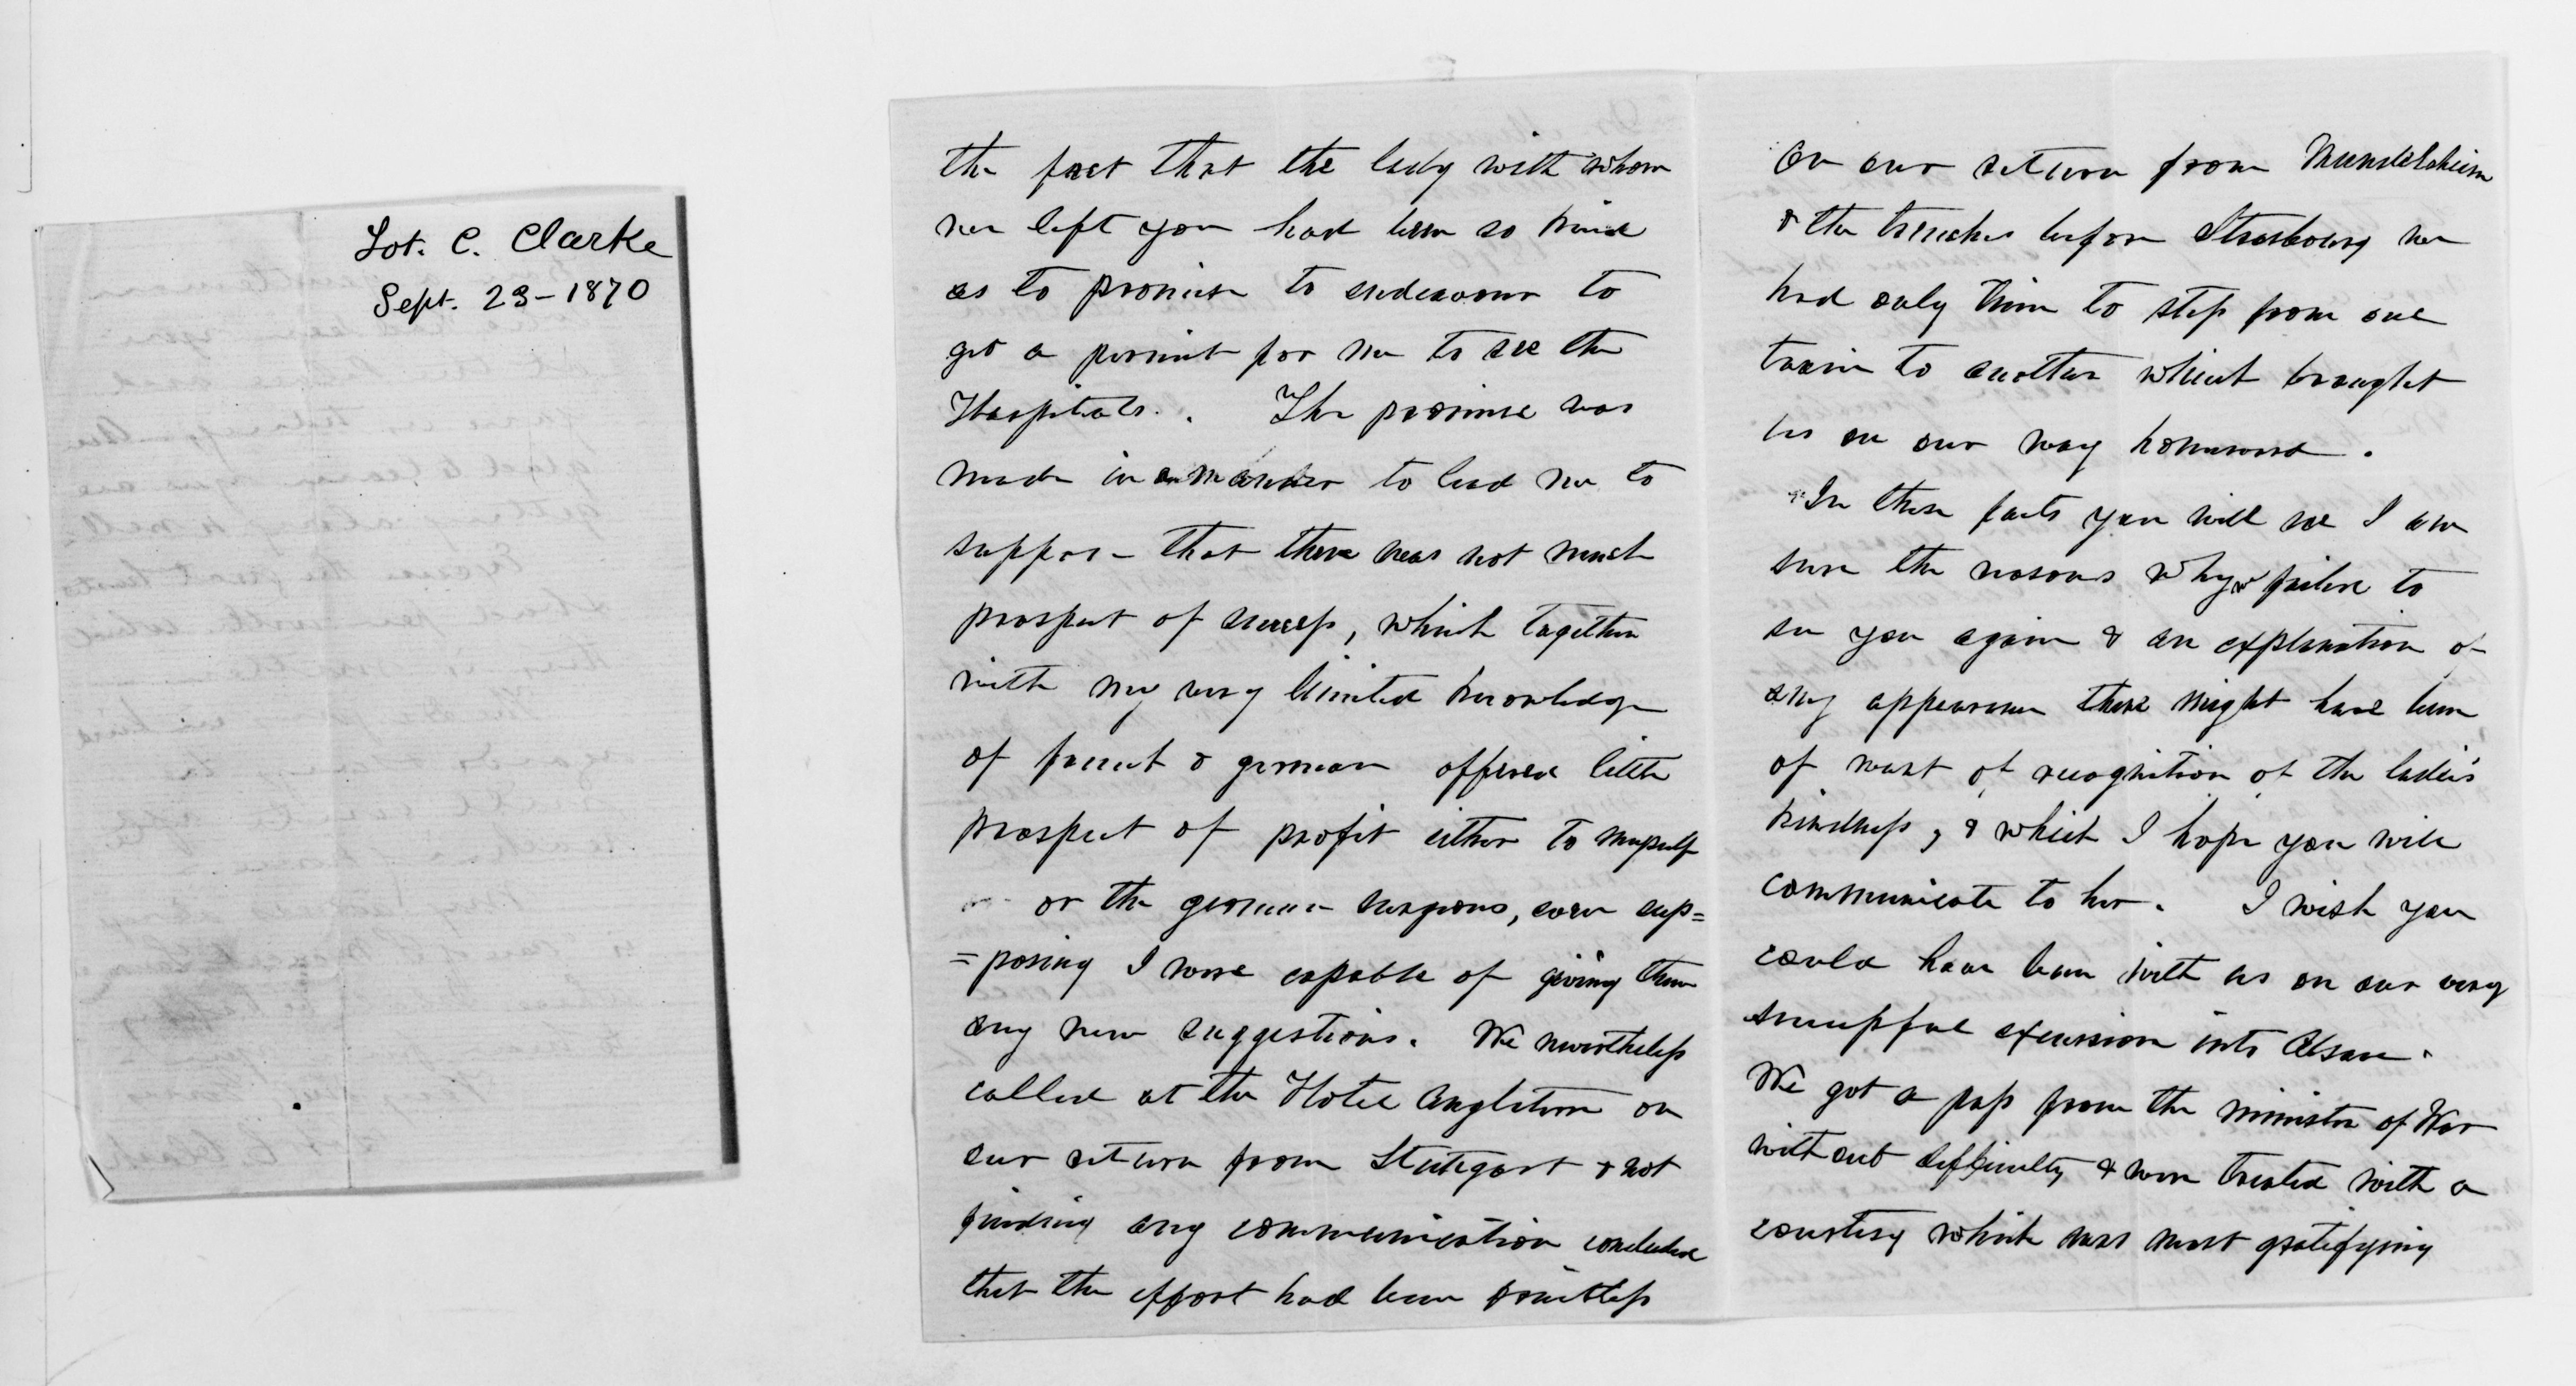 Lot. C. Clarke
Sept. 23-1870
the fact that the lady with whom
we left you had been so kind
as to promise to endeavour to
get a permit for me to see the
Hospitals. The promise was
made in a manner to lead me to
suppose that there was not much
prospect of success, which together
with my very limited knowledge
of french & german offered little
prospect of profit either to myself
or the german surgeons, even sup=
=posing I were capable of giving them
any new suggestions. We nevertheless
called at the Hotel Angleterre on
our return from Stutgart & not
finding any communication concluded
that the effort had been fruitless
On our return from Mundelsheim
& the trenches before Strasbourg we
had only time to step from one
train to another which brought
us on our way homeward.
In these facts you will see I am
sure the reasons why we failed to
see you again & an explanation of
any appearance there might have been
of want of recognition of the ladies
kindness, & which I hope you will
communicate to her. I wish you
could have been with us on our very
successful excursion into Alsace.
We got a pass from the minister of War
without difficulty & were treated with a
courtesy which was most gratifying